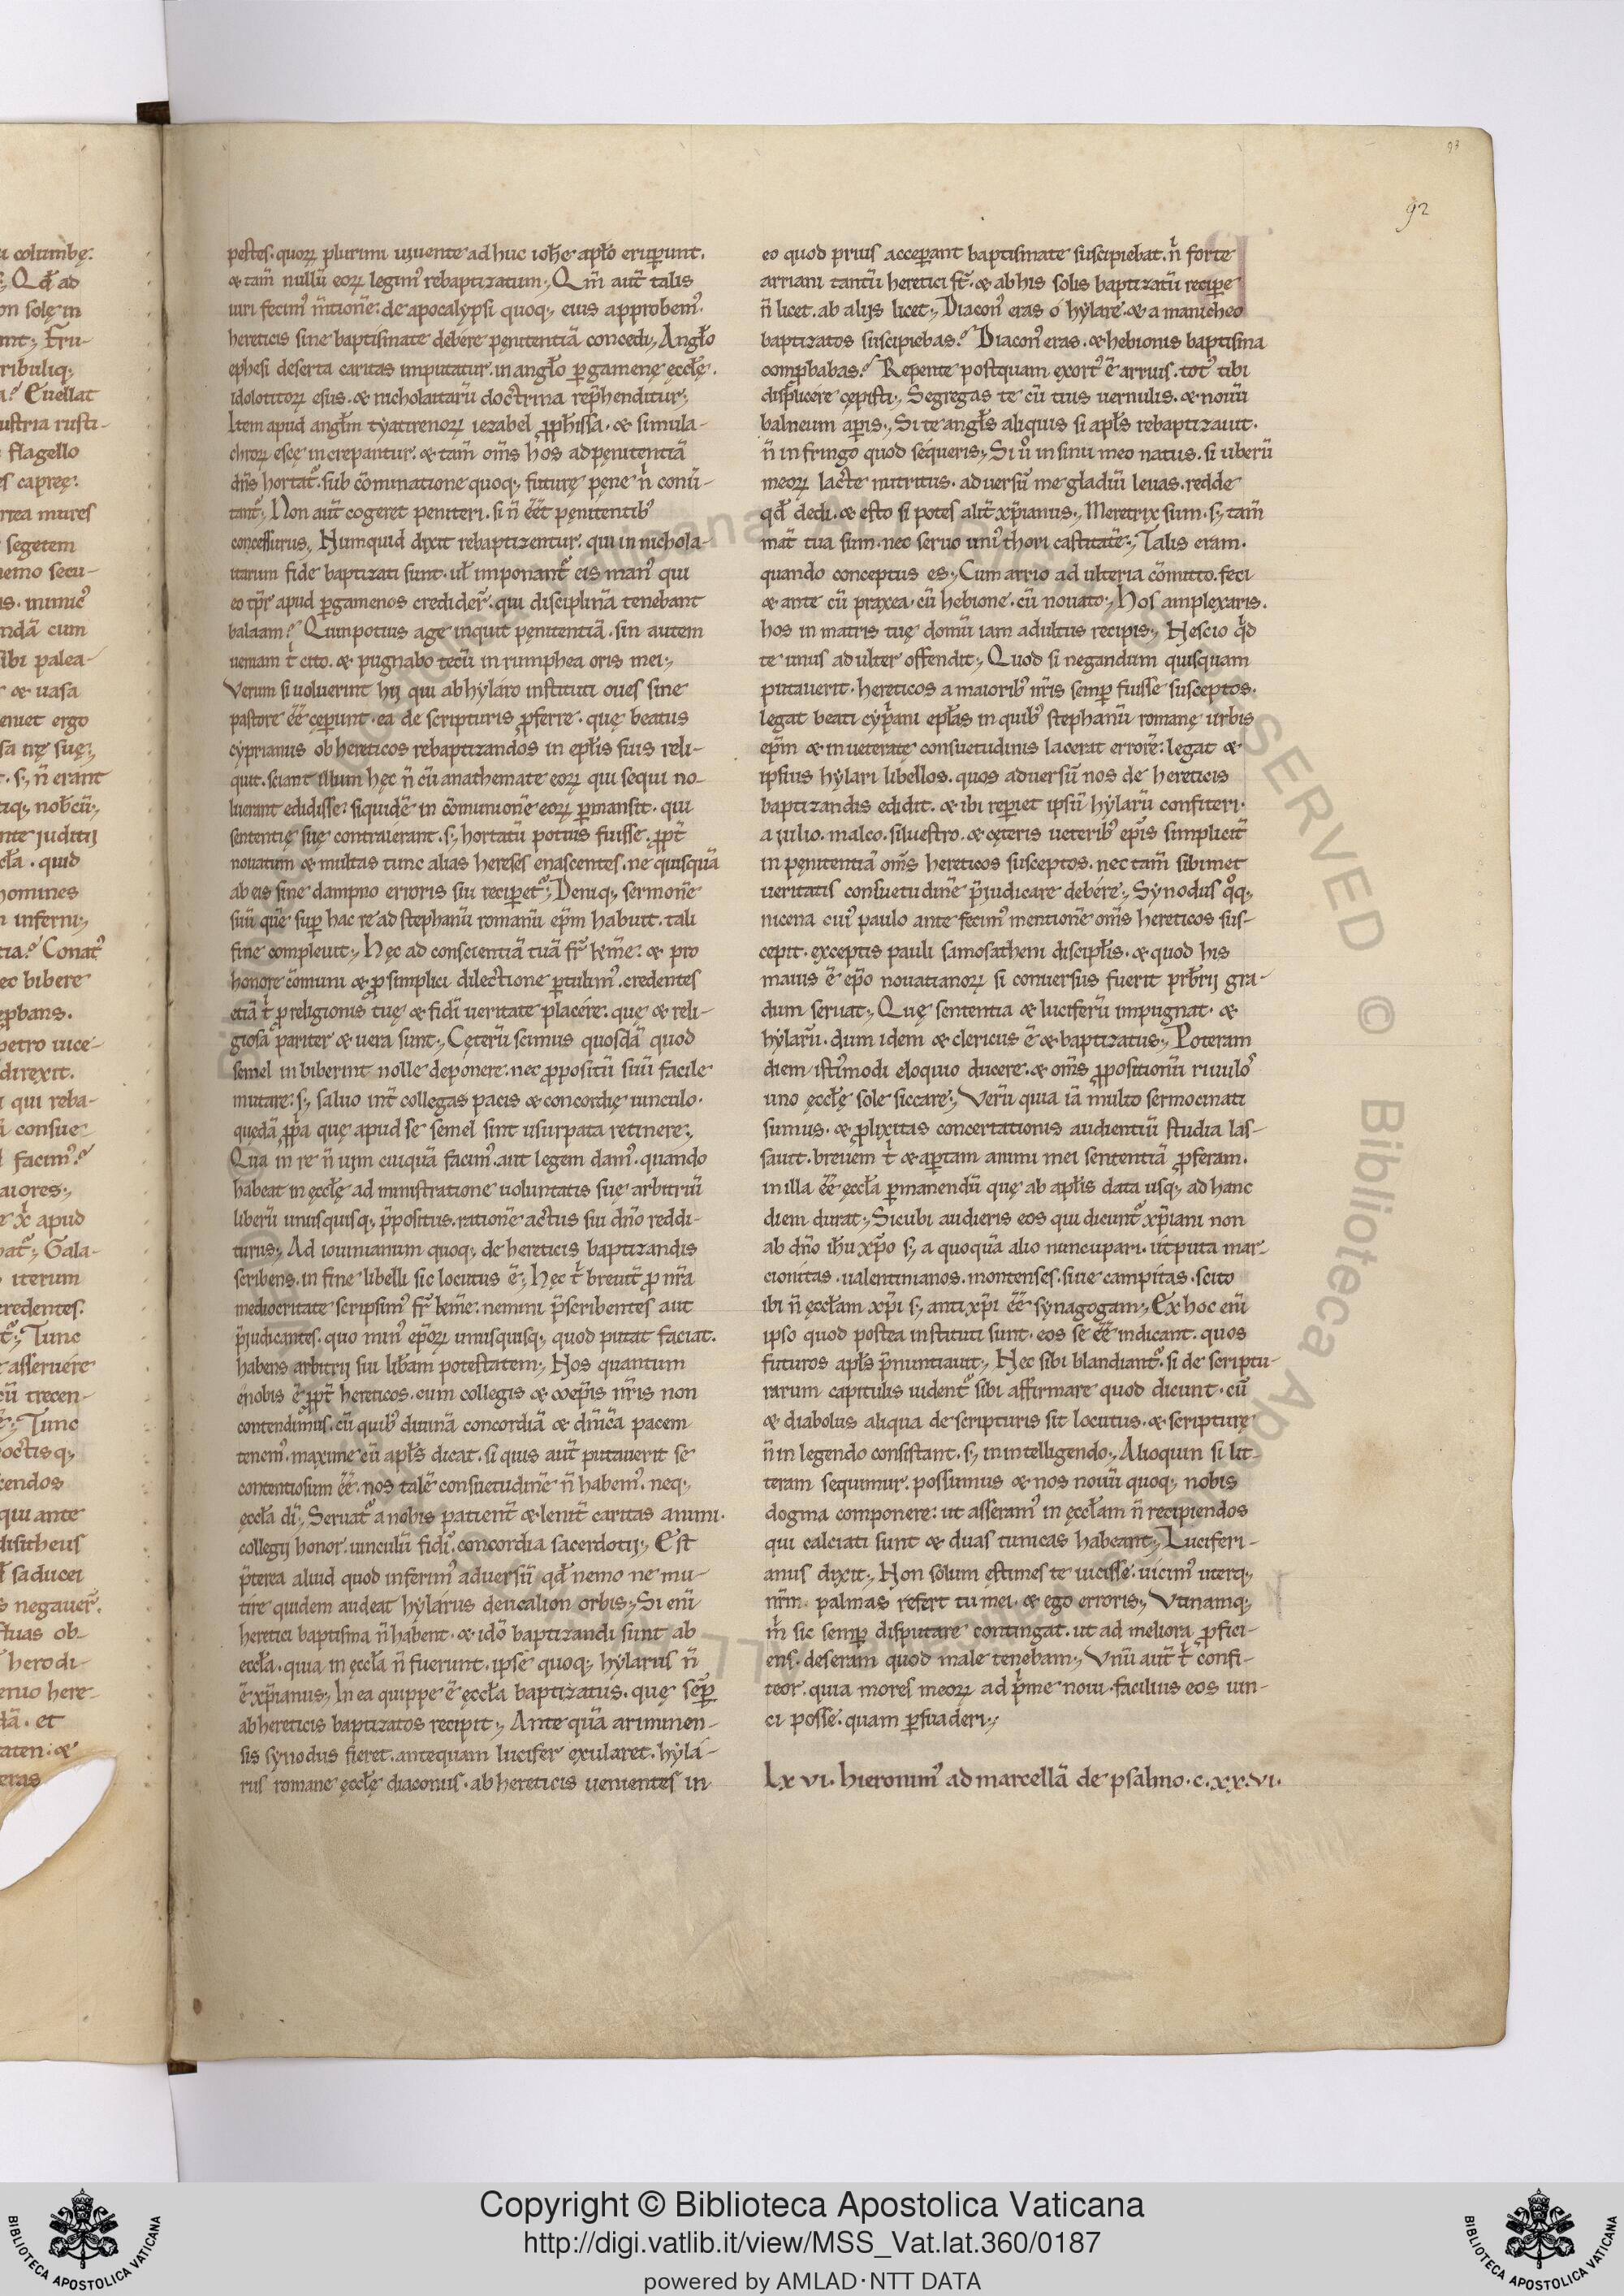 92
pestes. quoꝝ plurimi uiuente ad huc ioħe apło erup̱unt.
& tam̄ nullū eoꝝ legim᷒ rebaptizatum;, Qm̄ aut̄ talis
iuri fecim᷒ m̄tionē: de apocalypsi quoq;, eius approbem᷒.
hereticis sine baptismate debere pęnitentiā concedi;, Angło
ephesi deserta caritas imputatur. in angło p̱gamenę ęccłę.
idolotitoꝝ esus. & nicholaitarū doctrina rep̄henditur;,
Item apud angłm tyatirenoꝝ iezabel ꝓph̄issa. & simula-
chroꝝ escę increpantur. & tam̄ om̄s hos ad pęnitentiā
dn̄s hortat᷑. sub cōminatione quoq;, futurę pęne nͥ conū-
tant᷑;, Non aut̄ cogeret peniteri. si n̄ ēēt pęnitentib᷒
concessurus, Numquid dixit rebaptizentur. qui in nichola-
itarum fide baptizati sunt. uł imponant᷑ eis man᷒ qui
eo tp̄r apud p̱gamenos credider̄. qui disciplinā tenebant
balaam? Quin potius age inquit pęnitentiā. sin autem
ueniam tͥ cito. & pugnabo tecū in rumphea oris mei;,
Verum si uoluerint hij qui ab hylaro instituti oues sine
pastore ēē cęperunt. ea de scripturis ꝓferre. quę beatus
cyprianus ob hereticos rebaptizandos in epłis suis reli-
quit. sciant illum hęc n̄ cū anathemate eoꝝ qui sequi no-
luerant edidisse: siquidē in cōmunionē eoꝝ p̱mansit. qui
sententię suę contraierant. s;, hortatū potius fuisse. ꝓpt̄
nouatum & multas tunc alias hereses enascentes. ne quisquā
ab eis sine dampno erroris sui recip̱et᷑;, Deniq;, sermonē
suū quē sup̱ hac re ad stephanū romanū ep̄m habuit. tali
fine compleuit;, Hęc ad conscientiā tuā fr̄ km̄e: & pro
honore cōmuni & ꝓ simplici dilectione p̱tulim᷒. credentes
etiā tͥ ꝓ religionis tuę & fidi᷒ ueritate placere: quę & reli-
giosa pariter & uera sunt;, Cęterū scimus quosdā quod
semel inbiberint nolle deponere: nec ꝓpositū suū facile
mutare: s;, saluo int̄ collegas pacis & concordię uinculo.
quędā ꝓp̄a quę apud se semel sint usurpata retinere;,
Qua in re n̄ uim cuiquā facim᷒. aut legem dam᷒. quando
habeat in ęccłę administratione uoluntatis suę arbitriū
liberū unusquisq;, p̄positus. rationē actus sui dn̄o reddi-
turus;, Ad iouinianum quoq;, de hereticis baptizandis
scribens. in fine libelli sic locutus ē;, Hęc tͥ breuit̄ ꝓ nr̄a
mediocritate scripsim᷒ fr̄ km̄e: nemini p̄scribentes aut
p̄iudicantes. quo min᷒ ep̄oꝝ unusquisq;, quod putat faciat.
habens arbitrij sui lib̄am potestatem;, Nos quantum
e nobis ē ꝓpt̄ hereticos. cum collegis & coep̄is nr̄is non
contendimus. cū quib᷒ diuinā concordiā & dn̄icā pacem
tenem᷒. maxime cū apłs dicat. si quis aut̄ putauerit se
contentiosum ēē. nos talē consuetudinē n̄ habem᷒. neq;,
ęccła dī;, Seruat᷑ a nobis patient̄ & lenit̄ caritas animi.
collegij honor. uinculū fidi᷒. concordia sacerdotij;, Est
p̄terea aliud quod inferim᷒ aduersū qd̄ nemo ne mu-
tire quidem audeat hylarus deucalion orbis;, Si eni᷒
heretici baptisma n̄ habent. & idō baptizandi sunt ab
eccła. quia in ęccła n̄ fuerunt. ipse quoq;, hylarus n̄
ē xp̄ianus;, In ea quippe ē ęccła baptizatus. quę sēp̱
ab hereticis baptizatos recipit;, Ante quā arimınen-
sis synodus fieret. antequam lucifer exularet. hyla-
rus romane ęccłę diaconus. ab hereticis uenientes in
eo quod prius accep̱ant baptismate suscipiebat. nͥ forte
arriani tantū heretici st̄. & ab his solis baptizatū recipe
n̄ licet. ab alijs licet;, Diacon᷒ eras o hylare. & a manicheo
baptizatos suscipiebas? Diacon᷒ eras. & hebionis baptisma
comp̱babas? Repente postquam exort᷒ ē arrius. tot᷒ tibi
displicere cępisti;, Segregas te cū tuis uernulis. & nouū
balneum ap̱is;, Si te angłs aliquis si apłs rebaptizauit.
n̄ infringo quod sequeris;, Si uͦ in sinu meo natus. si uberū
meoꝝ lacte nutritus. aduersū me gladiū leuas. redde
qd̄ dedi. & esto si potes alit̄ xp̄ianus;, Meretrix sum. s;, tam̄
mat̄ tua sum. nec seruo uni᷒ thori castitatē;, Talis eram.
quando conceptus es;, Cum arrio adulteria cōmitto. feci
& ante cū praxea. cū hebione. cū nouato;, Hos amplexaris.
hos in matris tuę domū iam adultus recipis;, Nescio qͥd
te unus adulter offendit;, Quod si negandum quisquam
putauerit. hereticos a maiorib᷒ nr̄is semp̱ fuisse susceptos.
legat beati cypͥani epłas in quib᷒ stephanū romanę urbis
ep̄m & inueteratę consuetudinis lacerat errorē: legat &
ipsius hylari libellos. quos aduersū nos de hereticis
baptizandis edidit. & ibi rep̱iet ipsū hylarū confiteri.
a iulio. malco. siluestro. & cęteris ueterib᷒ ep̄is simplicit̄
in pęnitentiā om̄s hereticos susceptos. nec tam̄ sibimet
ueritatis consuetudinē p̄iudicare debere;, Synodus qͦq;,
nicena cui᷒ paulo ante fecim᷒ mentionē om̄s hereticos sus-
cepit. exceptis pauli samosatheni discipłis. & quod his
maius ē ep̄o nouatianoꝝ si conuersus fuerit prb̄rij gra-
dum seruat;, Quę sententia & luciferū impugnat. &
hylarū. dum idem & clericus ē & baptizatus;, Poteram
diem istimodi eloquio ducere. & om̄s ꝓpositionū riuulos
uno ęccłę sole siccare;, Verū quia iā multo sermocinati
sumus. & ꝓlixitas concertationis audientiū studia las-
sauit. breuem tͥ & ap̱tam animi mei sententiā ꝓferam.
in illa ēē ęccła p̱manendū quę ab apłis data usq;, ad hanc
diem durat;, Sicubi audieris eos qui dicunt᷑ xp̄iani non
ab dn̄o ih̄u xp̄o s;, a quoquā alio nuncupari. ut puta mar-
cionitas. ualentinianos. montenses. siue campitas. scito
ibi n̄ ęccłam xp̄i s;, anti xp̄i ēē synagogam;, Ex hoc eni᷒
ipso quod postea instituti sunt. eos se ēē indicant. quos
futuros apłs p̄nuntiauit;, Nec sibi blandiant᷑. si de scriptu-
rarum capitulis uident᷑ sibi affirmare quod dicunt. cū
& diabolus aliqua de scripturis sit locutus. & scripturę
n̄ in legendo consistant. s;, in intelligendo;, Alioquin si lit-
teram sequimur. possumus & nos nouū quoq;, nobis
dogma componere: ut asseram᷒ in ęccłam n̄ recipiendos
qui calciati sunt & duas tunicas habeant;, Luciferi-
anus dixit;, Non solum ęstimes te uicisse. uicim᷒ uterq;,
nr̄m. palmas refert tu mei. & ego erroris;, Vtinamq;,
mͥ sic semp̱ disputare contingat. ut ad meliora ꝓfici-
ens. deseram quod male tenebam;, Vnū aut̄ tͥ confi-
teor. quia mores meoꝝ adpͥme noui. facilius eos uin-
ci posse. quam p̱suaderi;,
Lxvi. hieronim᷒ ad marcellā de psalmo. c.xx.vi.
Copyright © Biblioteca Apostolica Vaticana
http://digi.vatlib.it/view/MSS_Vat.lat.360/0187
powered by AMLAD·NTT DATA